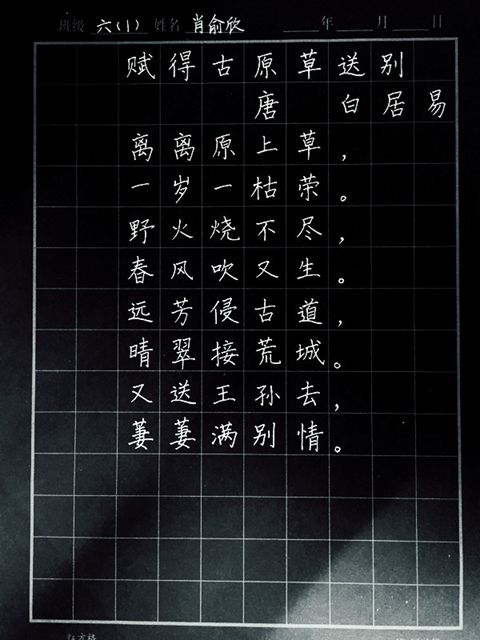 班级 六(1) 姓名 肖俞欣 年 月 日
赋得古原草送别
唐 白居易
离离原上草，
一岁一枯荣。
野火烧不尽，
春风吹又生。
远芳侵古道，
晴翠接荒城。
又送王孙去，
萋萋满别情。